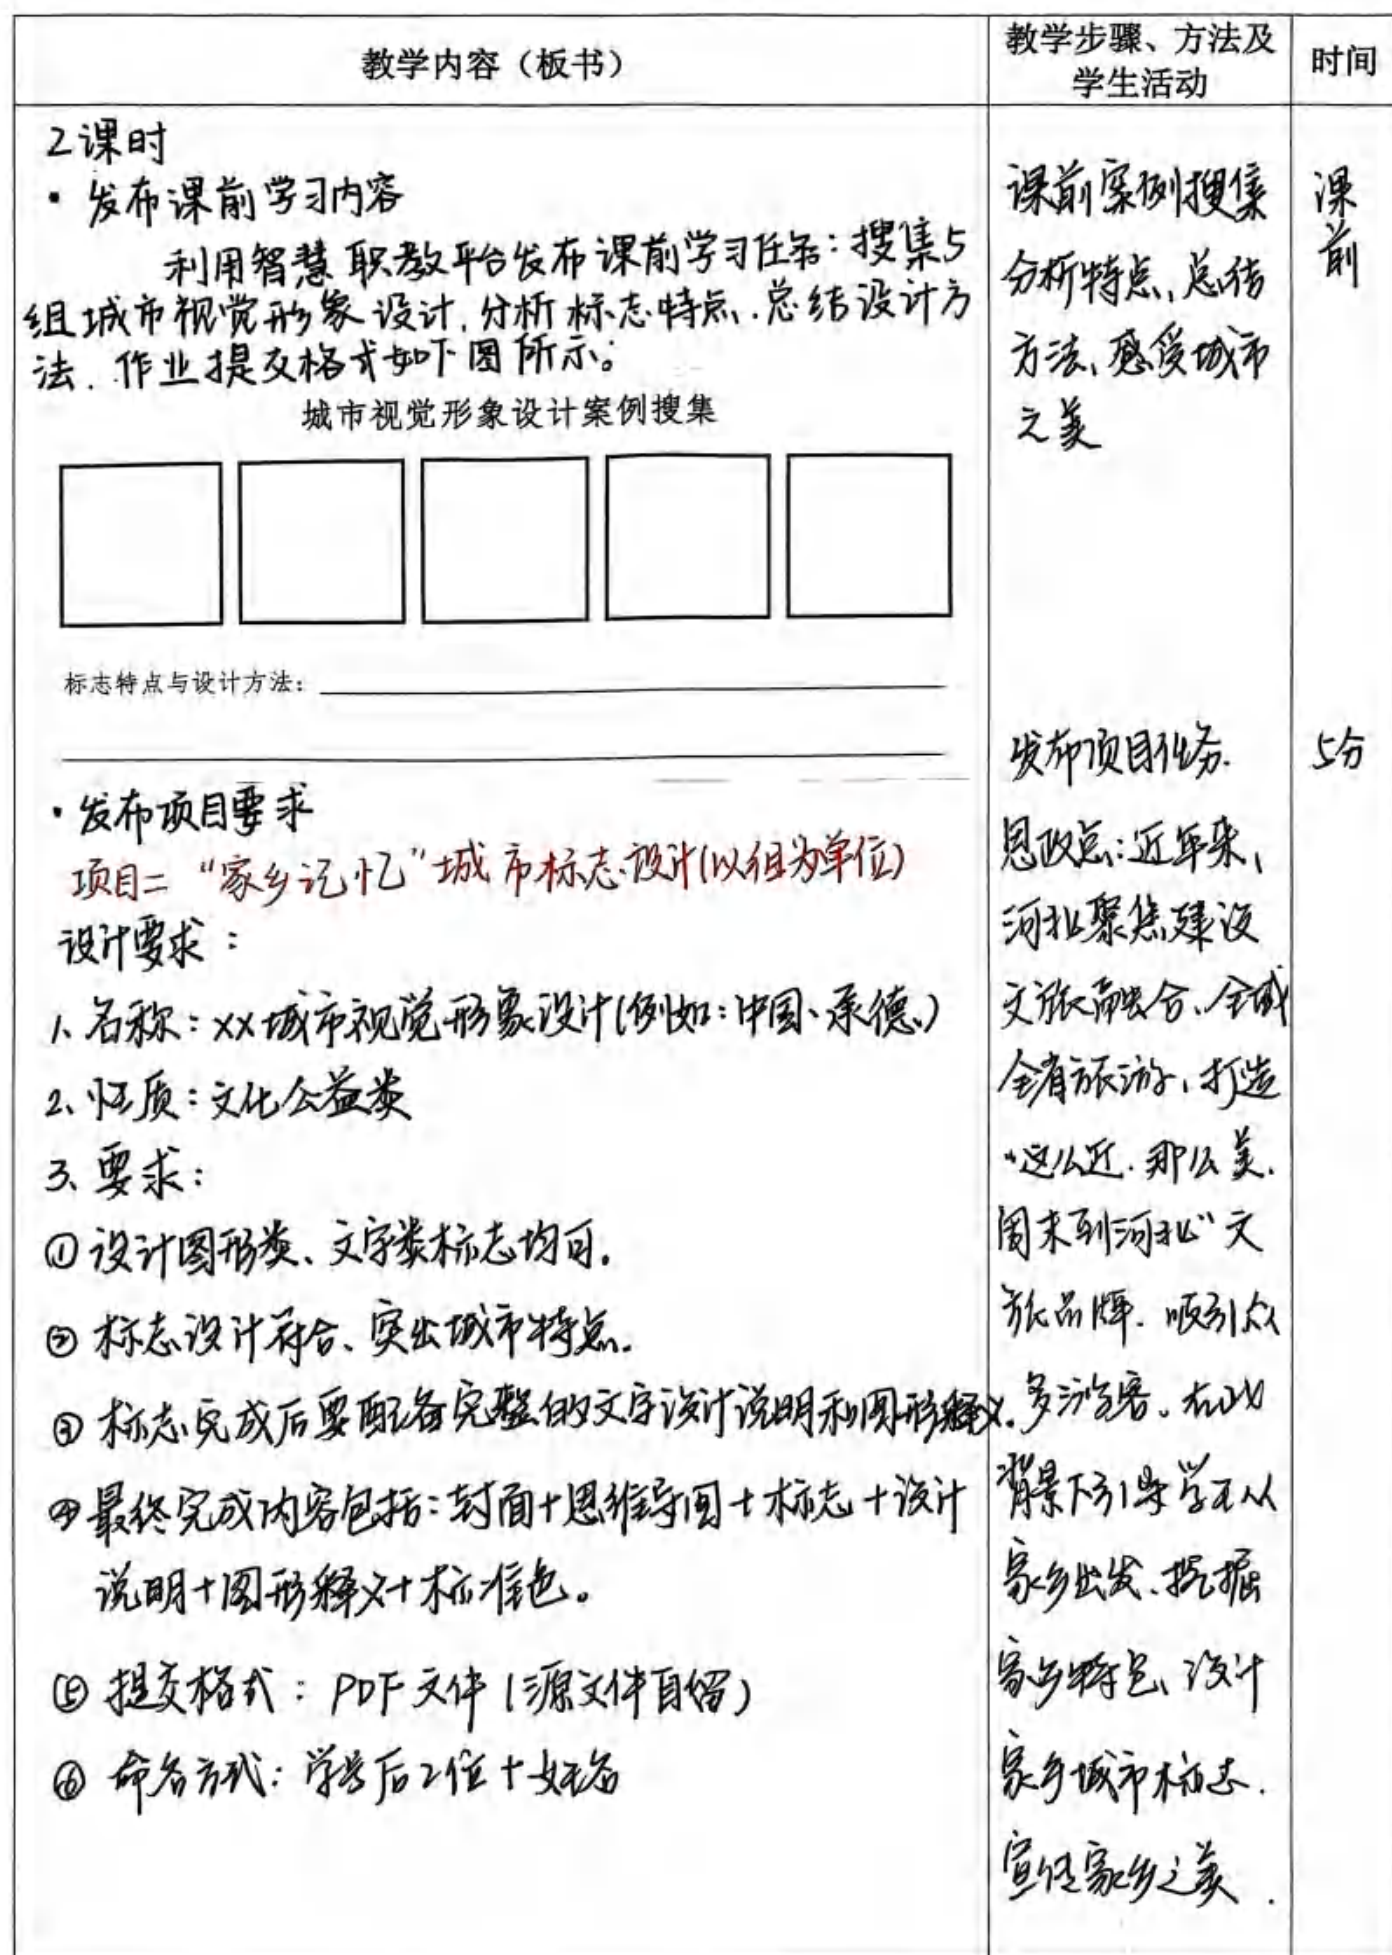 教学内容（板书）
教学步骤、方法及
学生活动
时间
2课时
· 发布课前学习内容
利用智慧职教平台发布课前学习任务：搜集5
组城市视觉形象设计，分析标志特点、总结设计方
法．作业提交格式如下图所示。
城市视觉形象设计案例搜集
标志特点与设计方法：
· 发布项目要求
项目二 “家乡记忆”城市标志设计（以组为单位）
设计要求：
1、名称：XX城市视觉形象设计（例如：中国、承德、）
2、性质：文化公益类
3、要求：
①设计图形类、文字类标志均可。
②标志设计符合、突出城市特点。
③标志完成后要配备完整的文字设计说明和图形释义。
④最终完成内容包括：封面＋思维导图＋标志＋设计
说明＋图形释义＋标准色。
⑤提交格式：PDF文件（源文件自留）
⑥命名方式：学号后2位＋姓名
课前案例搜集
分析特点、总结
方法、感受城市
之美
发布项目任务．
思政点：近年来，
河北聚焦建设
文旅融合、全域
全省旅游，打造
“这么近．那么美．
周末到河北”文
旅品牌．吸引众
多游客。在此
背景下引导学生从
家乡出发、挖掘
家乡特色、设计
家乡城市标志．
宣传家乡之美．
课
前
5分